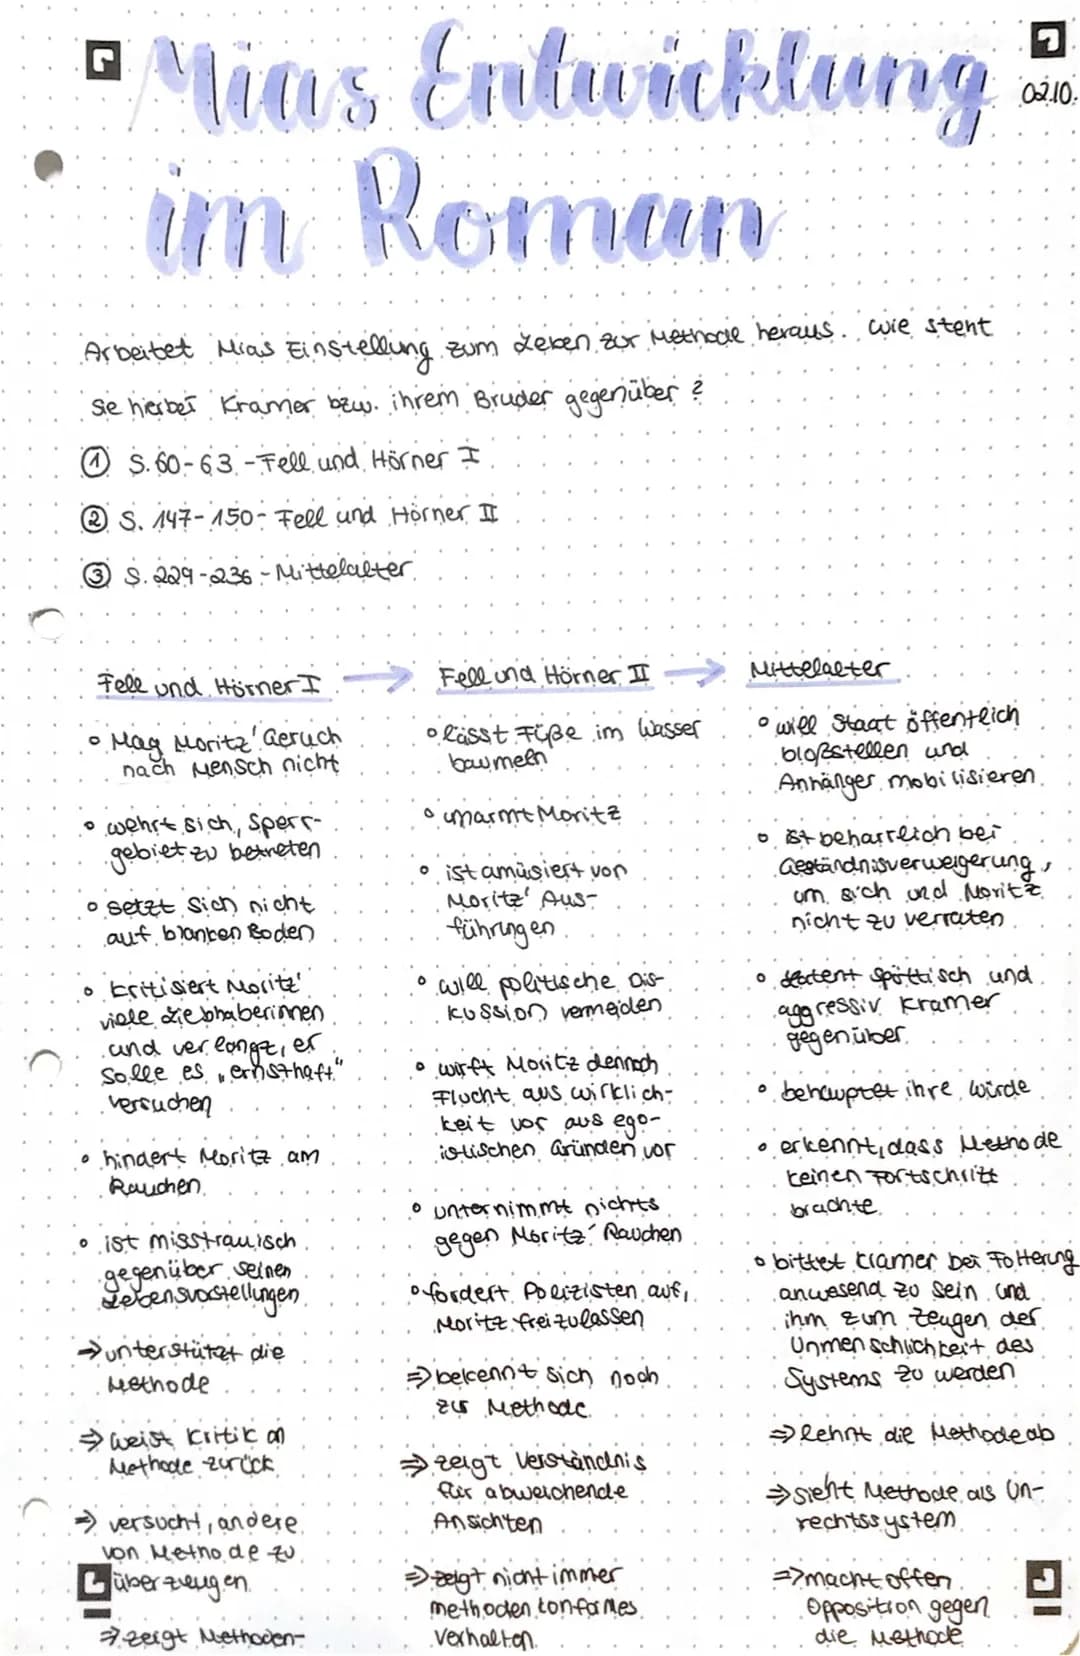 Mias Entwicklung
02.10.
im Roman
Arbeitet Mias Einstellung zum Leben zur Methode heraus. Wie steht
Sie hierbei Kramer bzw. ihrem Bruder gegenüber?
① S. 60-63 - Fell und Hörner I
② S. 147-150 - Fell und Hörner II
③ S. 229-236 - Mittelalter
Fell und Hörner I →
• Mag Moritz' Geruch
nach Mensch nicht
• wehrt sich, Sperr-
gebiet zu betreten
• setzt sich nicht
auf blanken Boden
• kritisiert Moritz'
viele Liebhaberinnen
und verlangt, er
solle es „ernsthaft"
versuchen
• hindert Moritz am
Rauchen
• ist misstrauisch
gegenüber seinen
Lebensvorstellungen
→ unterstützt die
Methode
⇒ weist Kritik an
Methode zurück
⇒ versucht, andere
von Methode zu
überzeugen
⇒ zeigt Methoden-
Fell und Hörner II →
• lässt Füße im Wasser
baumeln
• umarmt Moritz
• ist amüsiert von
Moritz' Aus-
führungen
• will politische Dis-
kussion vermeiden
• wirft Moritz dennoch
Flucht aus Wirklich-
keit vor aus ego-
istischen Gründen vor
• unternimmt nichts
gegen Moritz' Rauchen
• fordert Polizisten auf,
Moritz freizulassen
⇒ bekennt sich noch
zur Methode
⇒ zeigt Verständnis
für abweichende
Ansichten
⇒ zeigt nicht immer
methodenkonformes
Verhalten
Mittelalter
• will Staat öffentlich
bloßstellen und
Anhänger mobilisieren
• ist beharrlich bei
Geständnisverweigerung,
um sich und Moritz
nicht zu verraten
• spöttisch und
aggressiv Kramer
gegenüber
• behauptet ihre Würde
• erkennt, dass Methode
keinen Fortschritt
brachte
• bittet Kramer bei Folterung
anwesend zu sein und
ihm zum Zeugen der
Unmenschlichkeit des
Systems zu werden
⇒ lehnt die Methode ab
⇒ sieht Methode als Un-
rechtssystem
⇒ macht offen
Opposition gegen
die Methode